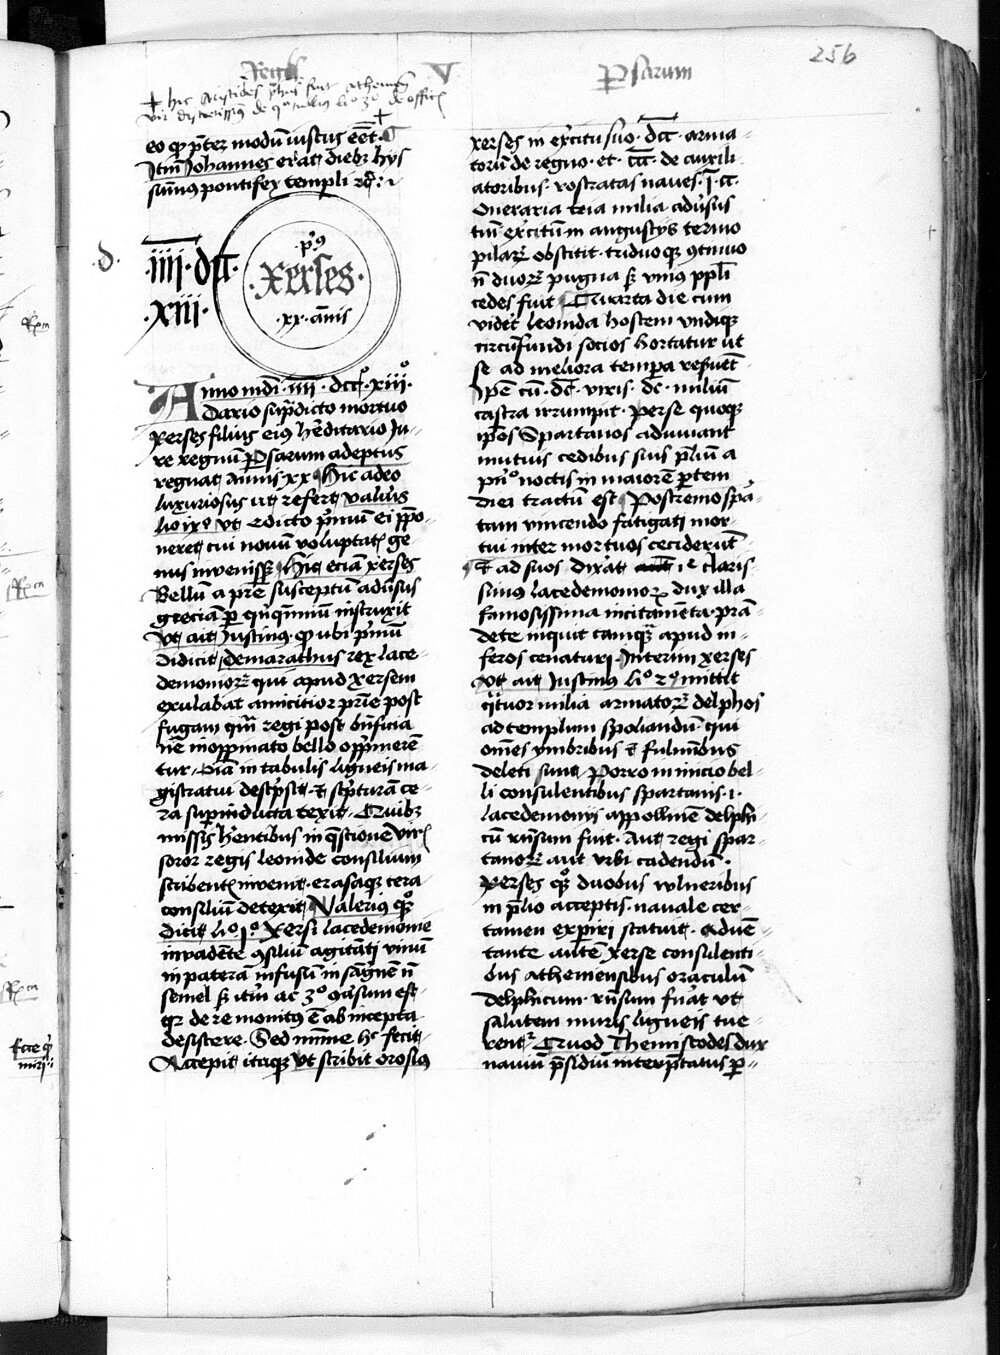 Regū V Psarum 256
✝ hic Aristides phūs fuit atheniēs
vir discretissimꝰ de qͦ tullius liͦ 3ͦ de offic̄
eo qꝫ p̄ter modū iustus eēt · ✝
Itm̄ Johannes erat diebꝫ hys
sūmus pontifex templi
·d·
·iiij·dcc·
·xiij·
·pꝰ·
·xerses·
·xx·annis
Anno mdi· iiij· dccͦ· xiijͦ·
Dario sup̄dicto mortuo
xerses filius eiꝰ hēditario Ju-
re regnū Psarum adeptus
regnat annis xx Hic adeo
luxuriosus ut refert valeriꝰ
liͦ ixͦ ut edicto p̄miū ei p̄po-
neret cui novū voluptatꝭ ge
nus invenisset Hic eciam xerses
Bellū a pr̄e susceptū adūsus
greciam p̄ quinquenniū instruxit
Vt ait Justinꝰ · qꝫ ubi p̄mū
didicit demarathus rex lace-
demonioꝝ qui apud xersem
exulabat amicitior pr̄ie post
fugam qm̄ regi post bn̄ficia
ne inoppinato bello opp̄merē-
tur · oīa in tabulis ligneis ma-
gistratui desc̄psit · ⁊ sc̄pturā ce-
ra sup̄inducta texit · Quibꝫ
missis
soror regis leonide consilium
scribentꝭ invenit · erasaqꝫ cera
consiliū detexit Valeriꝰ qꝫ
dicit liͦ jͦ · Xersi lacedemonie
invadēte ꝯsiliū agitāti vinū
in paterā infusū in sāgnē n̄
semel ſꝫ itꝝ ac 3ͦ ꝯūsum est
qr̄ de re monitꝰ ē ab incepta
desistere · Sed mīme hͨ fecit
Accepit itaqꝫ ut scribit orosiꝰ
xerses in ex̄citu suo · dcc· arma-
torū de regno · et · ccc· de auxili-
atoribus · rostratas naves · j̄· cc·
Oneraria tria milia adūsus
tm̄ ex̄citū in angustiis termo
pilaꝝ obstitit · triduoqꝫ ꝯtinuo
n̄ duoꝝ pugna ſꝫ vniꝰ ppl̄i
cedes fuit Quarta die cum
videt leonida hostem vndiqꝫ
circūfundi socios hortatur ut
se ad meliora tempa resuēt
Ip̄e cū · dc̄ · viris · dc̄ · miliū
castra irrumpit · perse quoqꝫ
ip̄os Spartanos adiuvant
mutuis cedibus suis p̄liū a
pn̄ͦ noctis in maiorē ptem
diei tractū est Postremo spā-
tam vincendo fatigati mor-
tui inter mortuos ceciderūt
⁊ ad suos dix̄at
simus lacedemonioꝝ dux illa
famosissima incitamēta · prā-
dete inquit tamqꝫ apud in-
feros cenaturi · Interim xerses
Vt ait Justinus liͦ 2ͦ mittit
qͣtuor milia armatoꝝ delphos
ad templum spoliandū · qui
omēs ymbribus ⁊ fulmībus
deleti sunt · Porro in inicio bel-
li consulentibus spartanis · i ·
lacedemoniis appollinē delphi-
cū rn̄sum fuit · Aut regi spar-
tanoꝝ aut urbi cadendū ·
Xerses qꝫ duobus vulneribus
in p̄lio acceptis · navale cer-
tamen exp̄iri statuit · Aduē-
tante autē xerse consulenti-
bus atheniensibus oraculū
delphicum · rn̄sum fūat ut
salutem muris ligneis tue-
rent̄ · Quod Themistodes dux
naviū p̄sidiū interp̄tatus p̄-